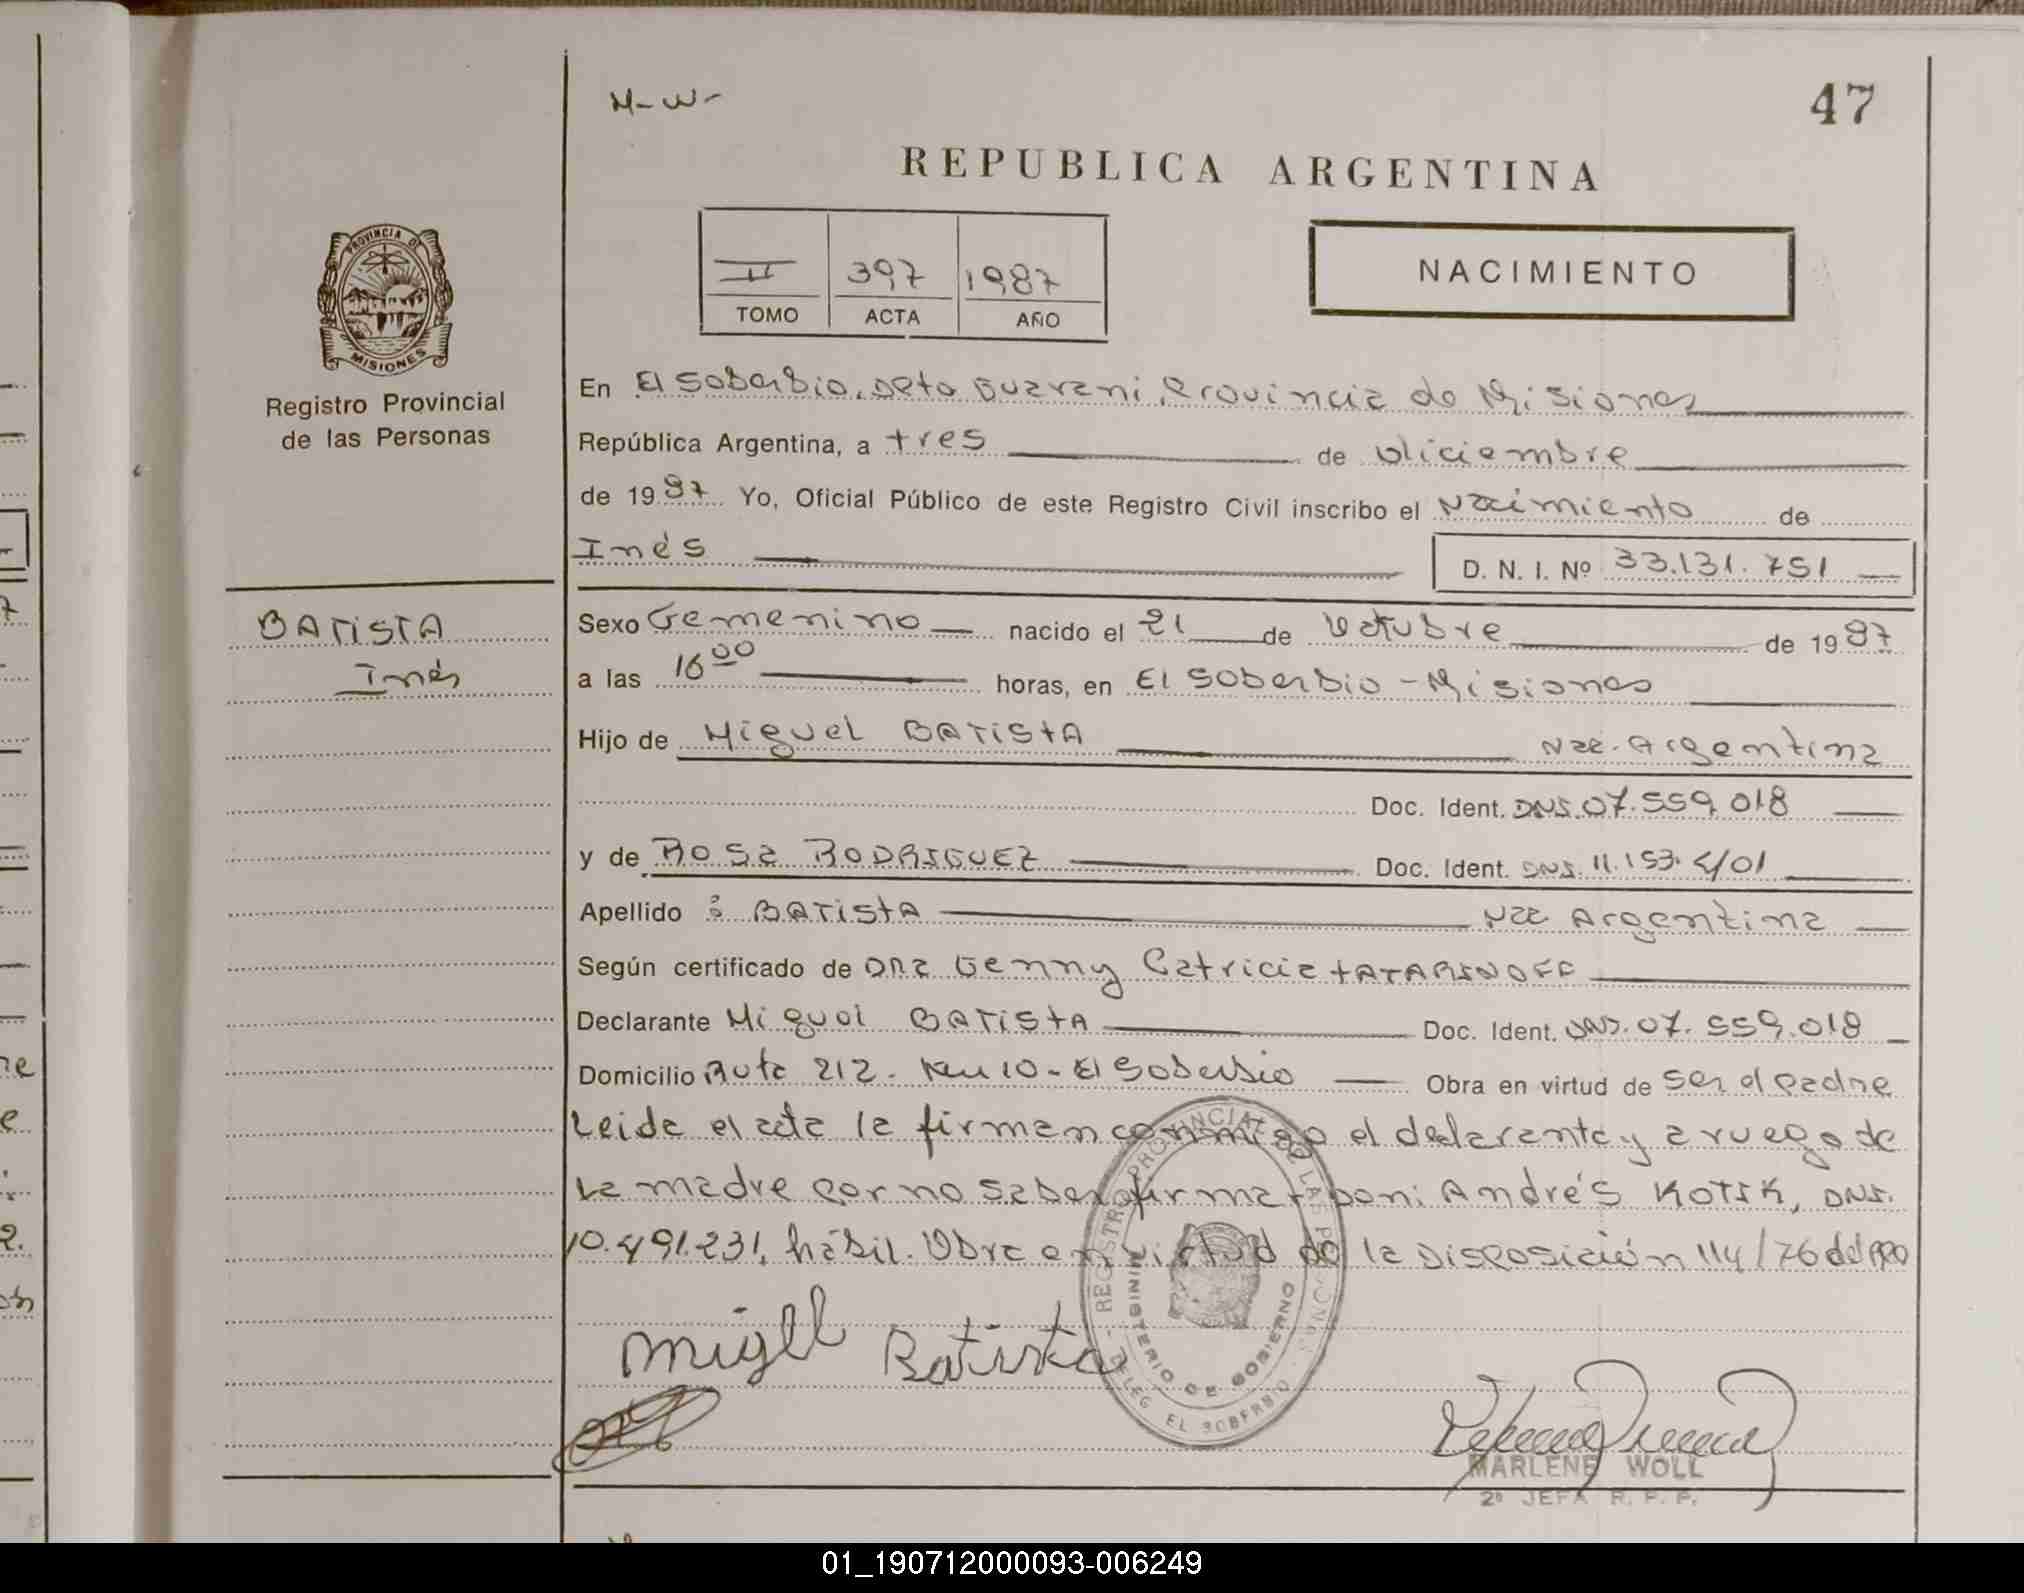 M-W-
47
REPUBLICA ARGENTINA
II 397 1987
TOMO ACTA AÑO
NACIMIENTO
PROVINCIA DE
MISIONES
Registro Provincial
de las Personas
En El Soberbio, Dpto Guarani, Provincia de Misiones
República Argentina, a tres de diciembre
de 1987 Yo, Oficial Público de este Registro Civil inscribo el Nacimiento de
Inés
D. N. I. Nº 33.131.751
BATISTA
Inés
Sexo Femenino nacido el 21 de Octubre de 1987
a las 16 00 horas, en El Soberbio - Misiones
Hijo de Miguel BATISTA Nac. Argentina
Doc. Ident. DNI. 07.559.018
y de Rosa RODRIGUEZ Doc. Ident. DNI. 11.153.401
Apellido : BATISTA Nac Argentina
Según certificado de Dra Genny Patricia TATARINOFF
Declarante Miguel BATISTA Doc. Ident. DNI. 07.559.018
Domicilio Ruta 212. Km 10 - El Soberbio Obra en virtud de ser el padre
Leida el acta la firman conmigo el declarante y a ruego de
la madre por no saber firmar poni Andrés KOTIK, DNI.
10.491.231, hábil. Obra en virtud de la Disposición 114/76 del RPP
REGISTRO PROVINCIAL DE LAS PERSONAS
MINISTERIO DE GOBIERNO
DELEG EL SOBERBIO
Migell Batista
MARLENE WOLL
2º JEFA R. P. P.
01_190712000093-006249